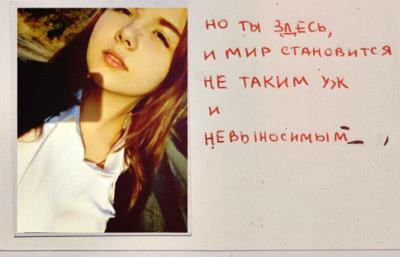 НО ТЫ ЗДЕСЬ,
И МИР СТАНОВИТСЯ
НЕ ТАКИМ УЖ
И
НЕВЫНОСИМЫМ